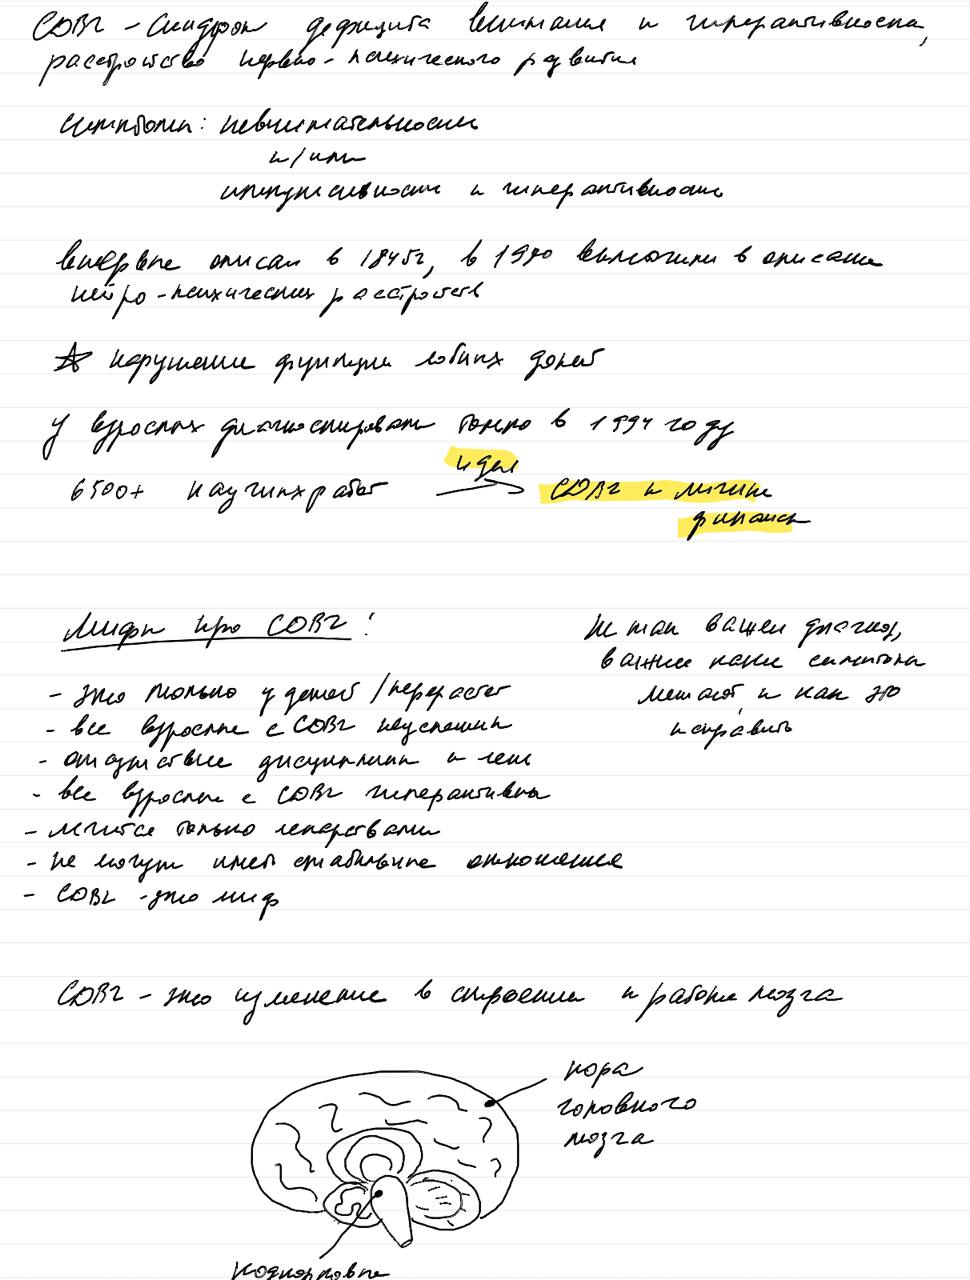 СДВГ - синдром дефицита внимания и гиперактивности,
расстройство нервно-психического развития
симптомы: невнимательность
и/или
импульсивность и гиперактивность
впервые описан в 1845г, в 1980 включили в описание
нейро-психических расстройств
☆ нарушение функции лобных долей
у взрослых диагностировать только в 1994 году
идея
6500+ научных работ → СДВГ и личные
финансы
Мифы про СДВГ!
- это только у детей/перерастет
- все взрослые с СДВГ неуспешны
- отсутствие дисциплины и лень
- все взрослые с СДВГ гиперактивны
- лечится только лекарствами
- не могут иметь стабильные отношения
- СДВГ - это миф
Не так важен диагноз,
важнее какие симптомы
мешают и как это
исправить
СДВГ - это изменение в строении и работе мозга
кора
головного
мозга
подкорковые